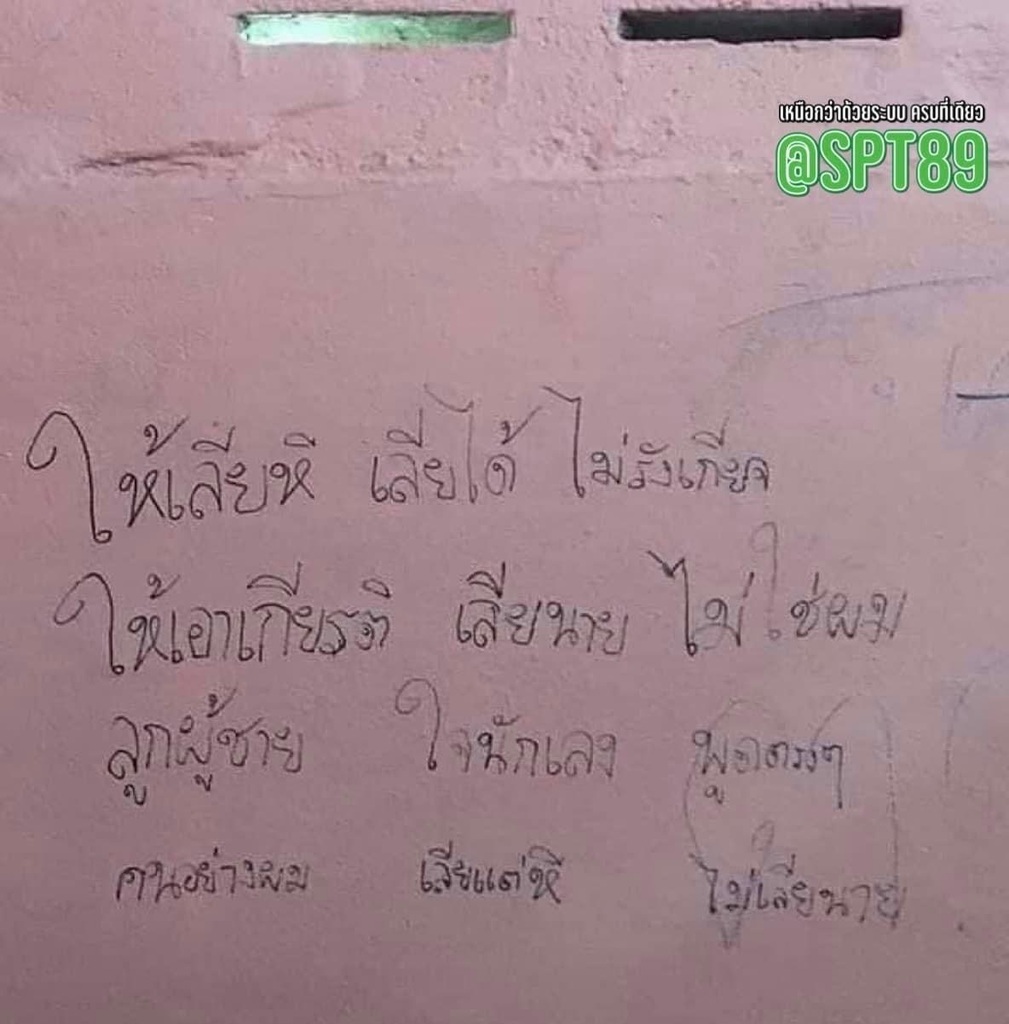 เหนือกว่าด้วยระบบ ครบที่เดียว
@SPT89
ให้เลียหี เลียได้ ไม่รังเกียจ
ให้เอาเกียรติ เลียนาย ไม่ใช่ผม
ลูกผู้ชาย ใจนักเลง พูดตรงๆ
คนอย่างผม เลียแต่หี ไม่เลียนาย